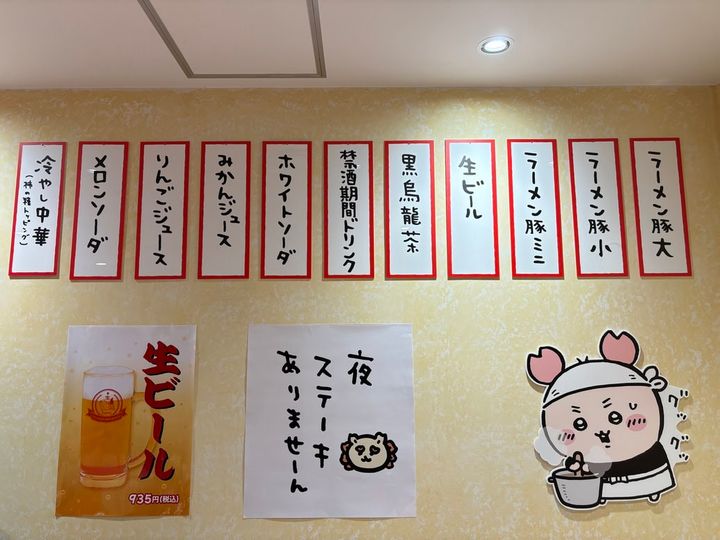 ラーメン豚大
ラーメン豚小
ラーメン豚ミニ
生ビール
黒烏龍茶
禁酒期間ドリンク
ホワイトソーダ
みかんジュース
りんごジュース
メロンソーダ
冷やし中華
生ビール
935円(税込)
夜
ステーキ
ありませーん
グッ
グッ